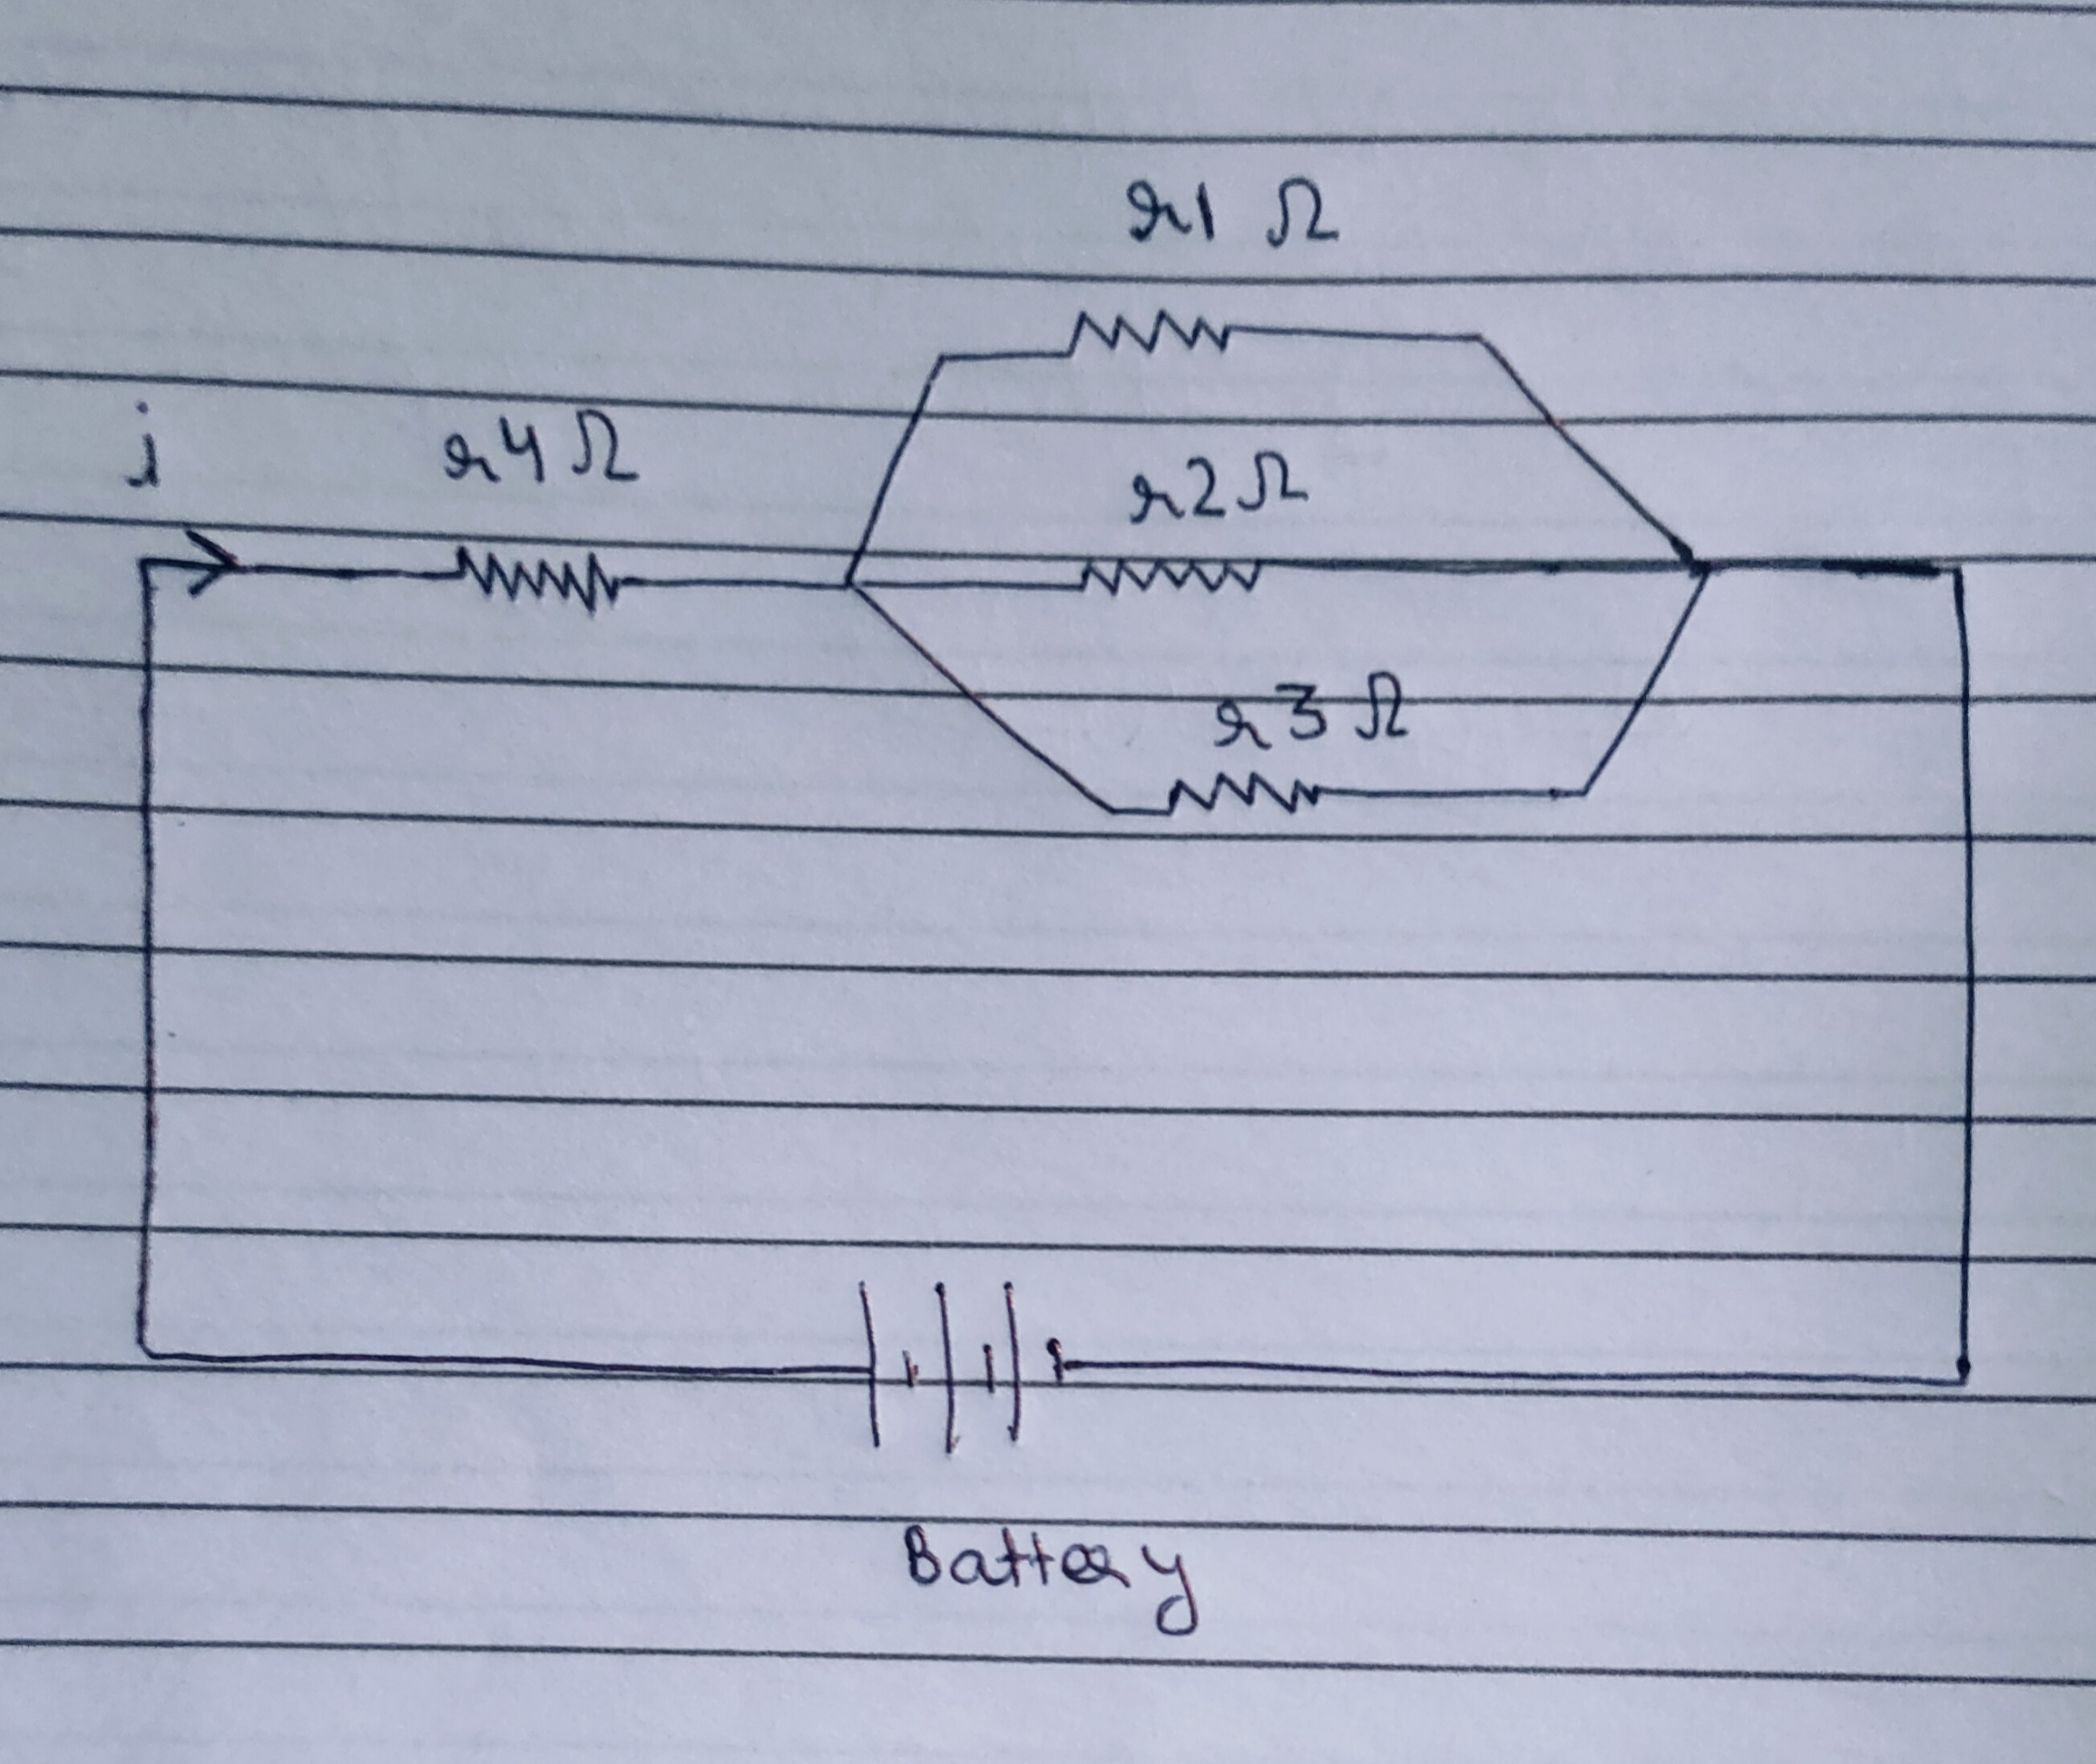 r1 Ω
i
r4 Ω
r2 Ω
r3 Ω
Battery